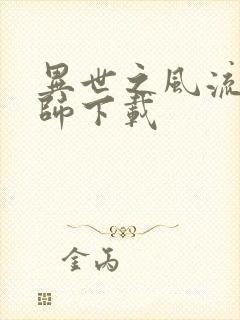 異世之風流
師下載
金丙